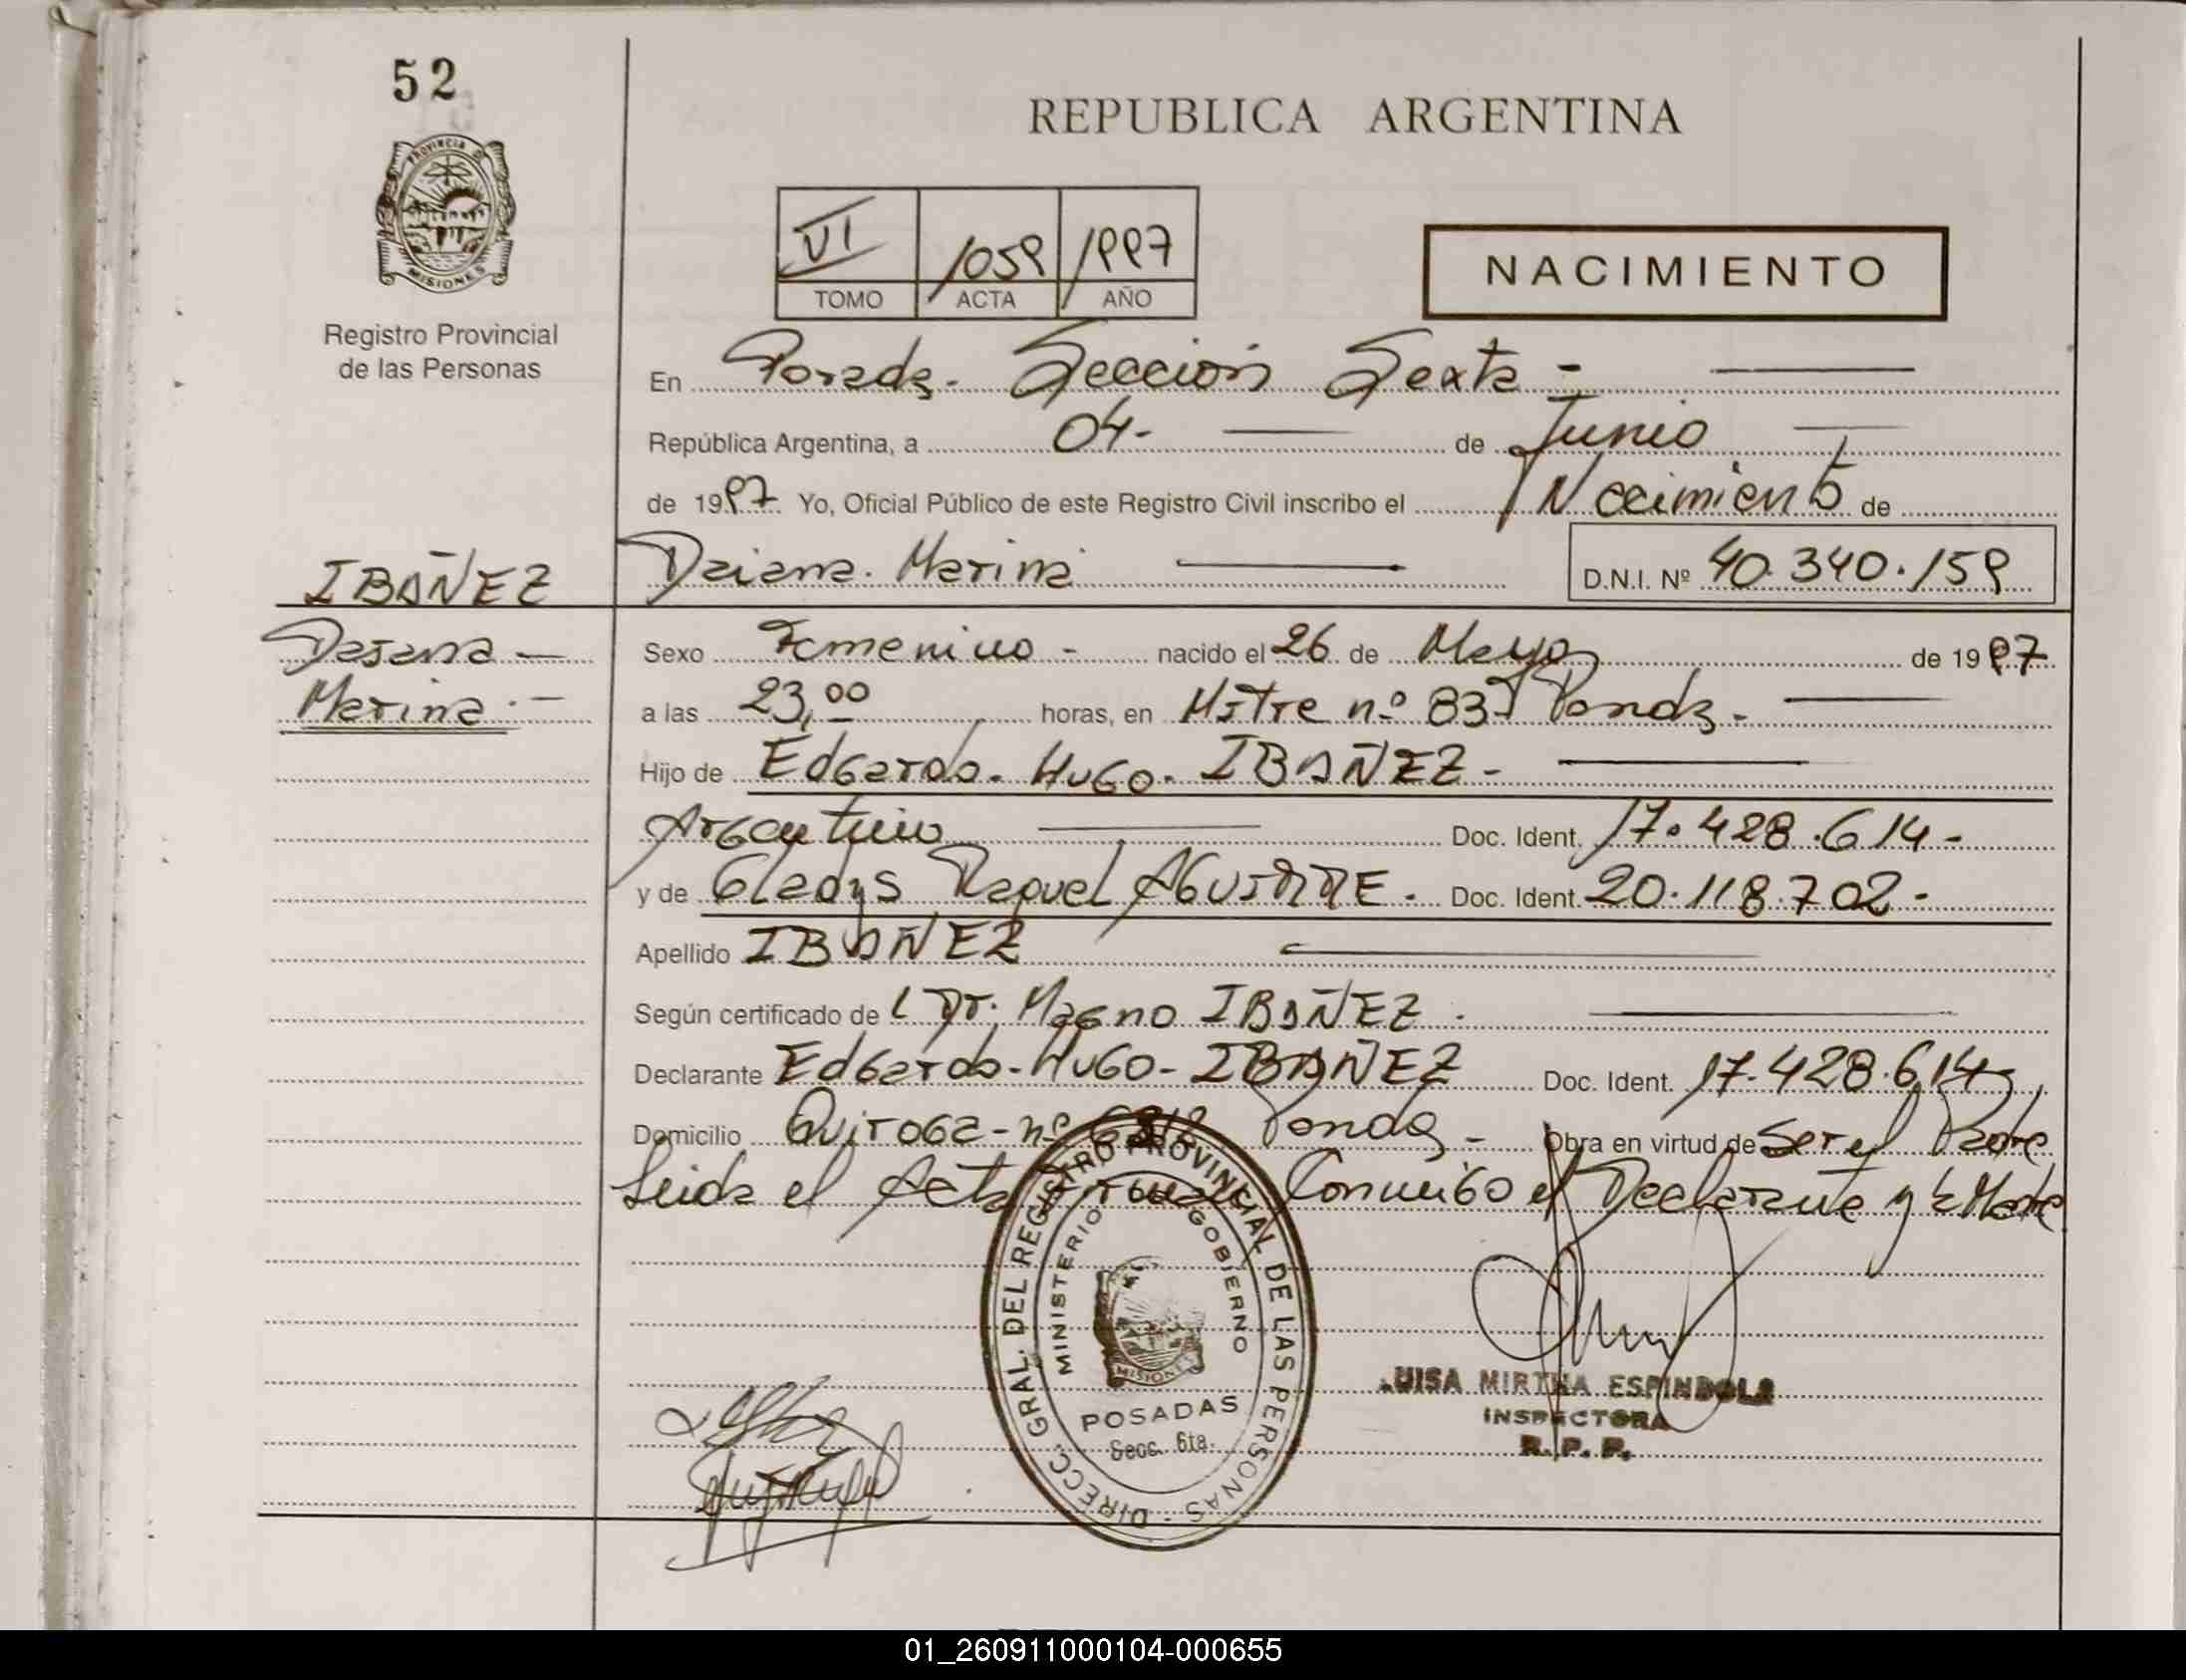 52
REPUBLICA ARGENTINA
PROVINCIA D
MISIONES
Registro Provincial
de las Personas
VI 1059 1997
TOMO ACTA AÑO
NACIMIENTO
En Posadas. Sección Sexta -
República Argentina, a 04- de Junio
de 1997 Yo, Oficial Público de este Registro Civil inscribo el Nacimiento de
IBAÑEZ
Daiana. Marina
D.N.I. Nº 40.340.159
Daiana -
Marina.-
Sexo Femenino - nacido el 26 de Mayo de 1997
a las 23,00 horas, en Mitre nº Posadas.-
Hijo de Edgardo. Hugo. IBAÑEZ -
Argentino Doc. Ident. 17.428.614-
y de Gladys Raquel AGUIRRE. Doc. Ident. 20.118.702-
Apellido IBAÑEZ
Según certificado de Dr. Magno IBAÑEZ.
Declarante Edgardo-Hugo-IBAÑEZ Doc. Ident. 17.428.614-
Domicilio Quiroga-nº Posadas - Obra en virtud de Ser el Padre
Leida el Acta Firman Conmigo el Declarante y la Madre
DIRECC. GRAL. DEL REGISTRO PROVINCIAL DE LAS PERSONAS
MINISTERIO GOBIERNO
MISIONES
POSADAS
Secc. 6ta.
LUISA MIRTHA ESPINDOLA
INSPECTORA
R. P. P.
01_260911000104-000655